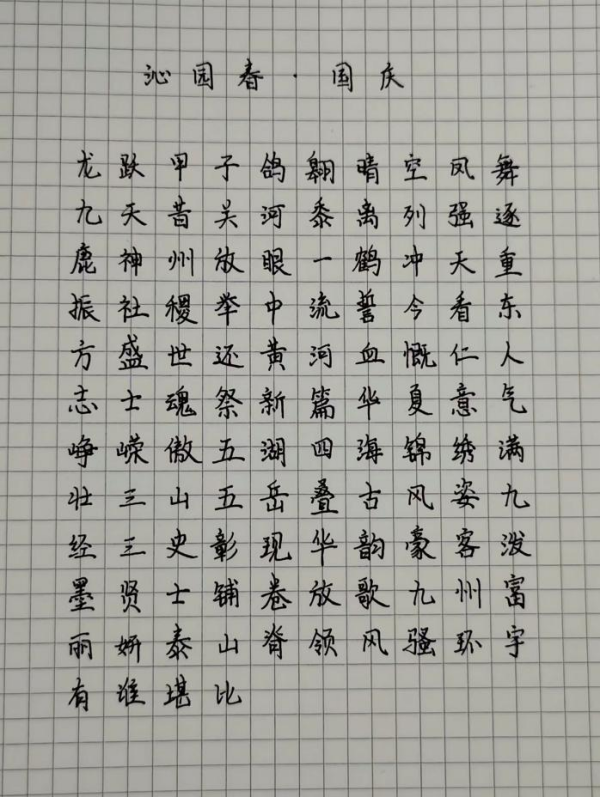 沁园春·国庆
龙跃甲子鸽翱晴空凤舞
九天昔吴河黍离列强逐
鹿神州放眼一鹤冲天重
振社稷举中流誓今看东
方盛世还黄河血慨仁人
志士魂祭新篇华夏意气
峥嵘傲五湖四海锦绣满
壮三山五岳叠古风姿九
经三史彰现华韵豪客泼
墨贤士铺卷放歌九州富
丽妍泰山脊领风骚环宇
有谁堪比